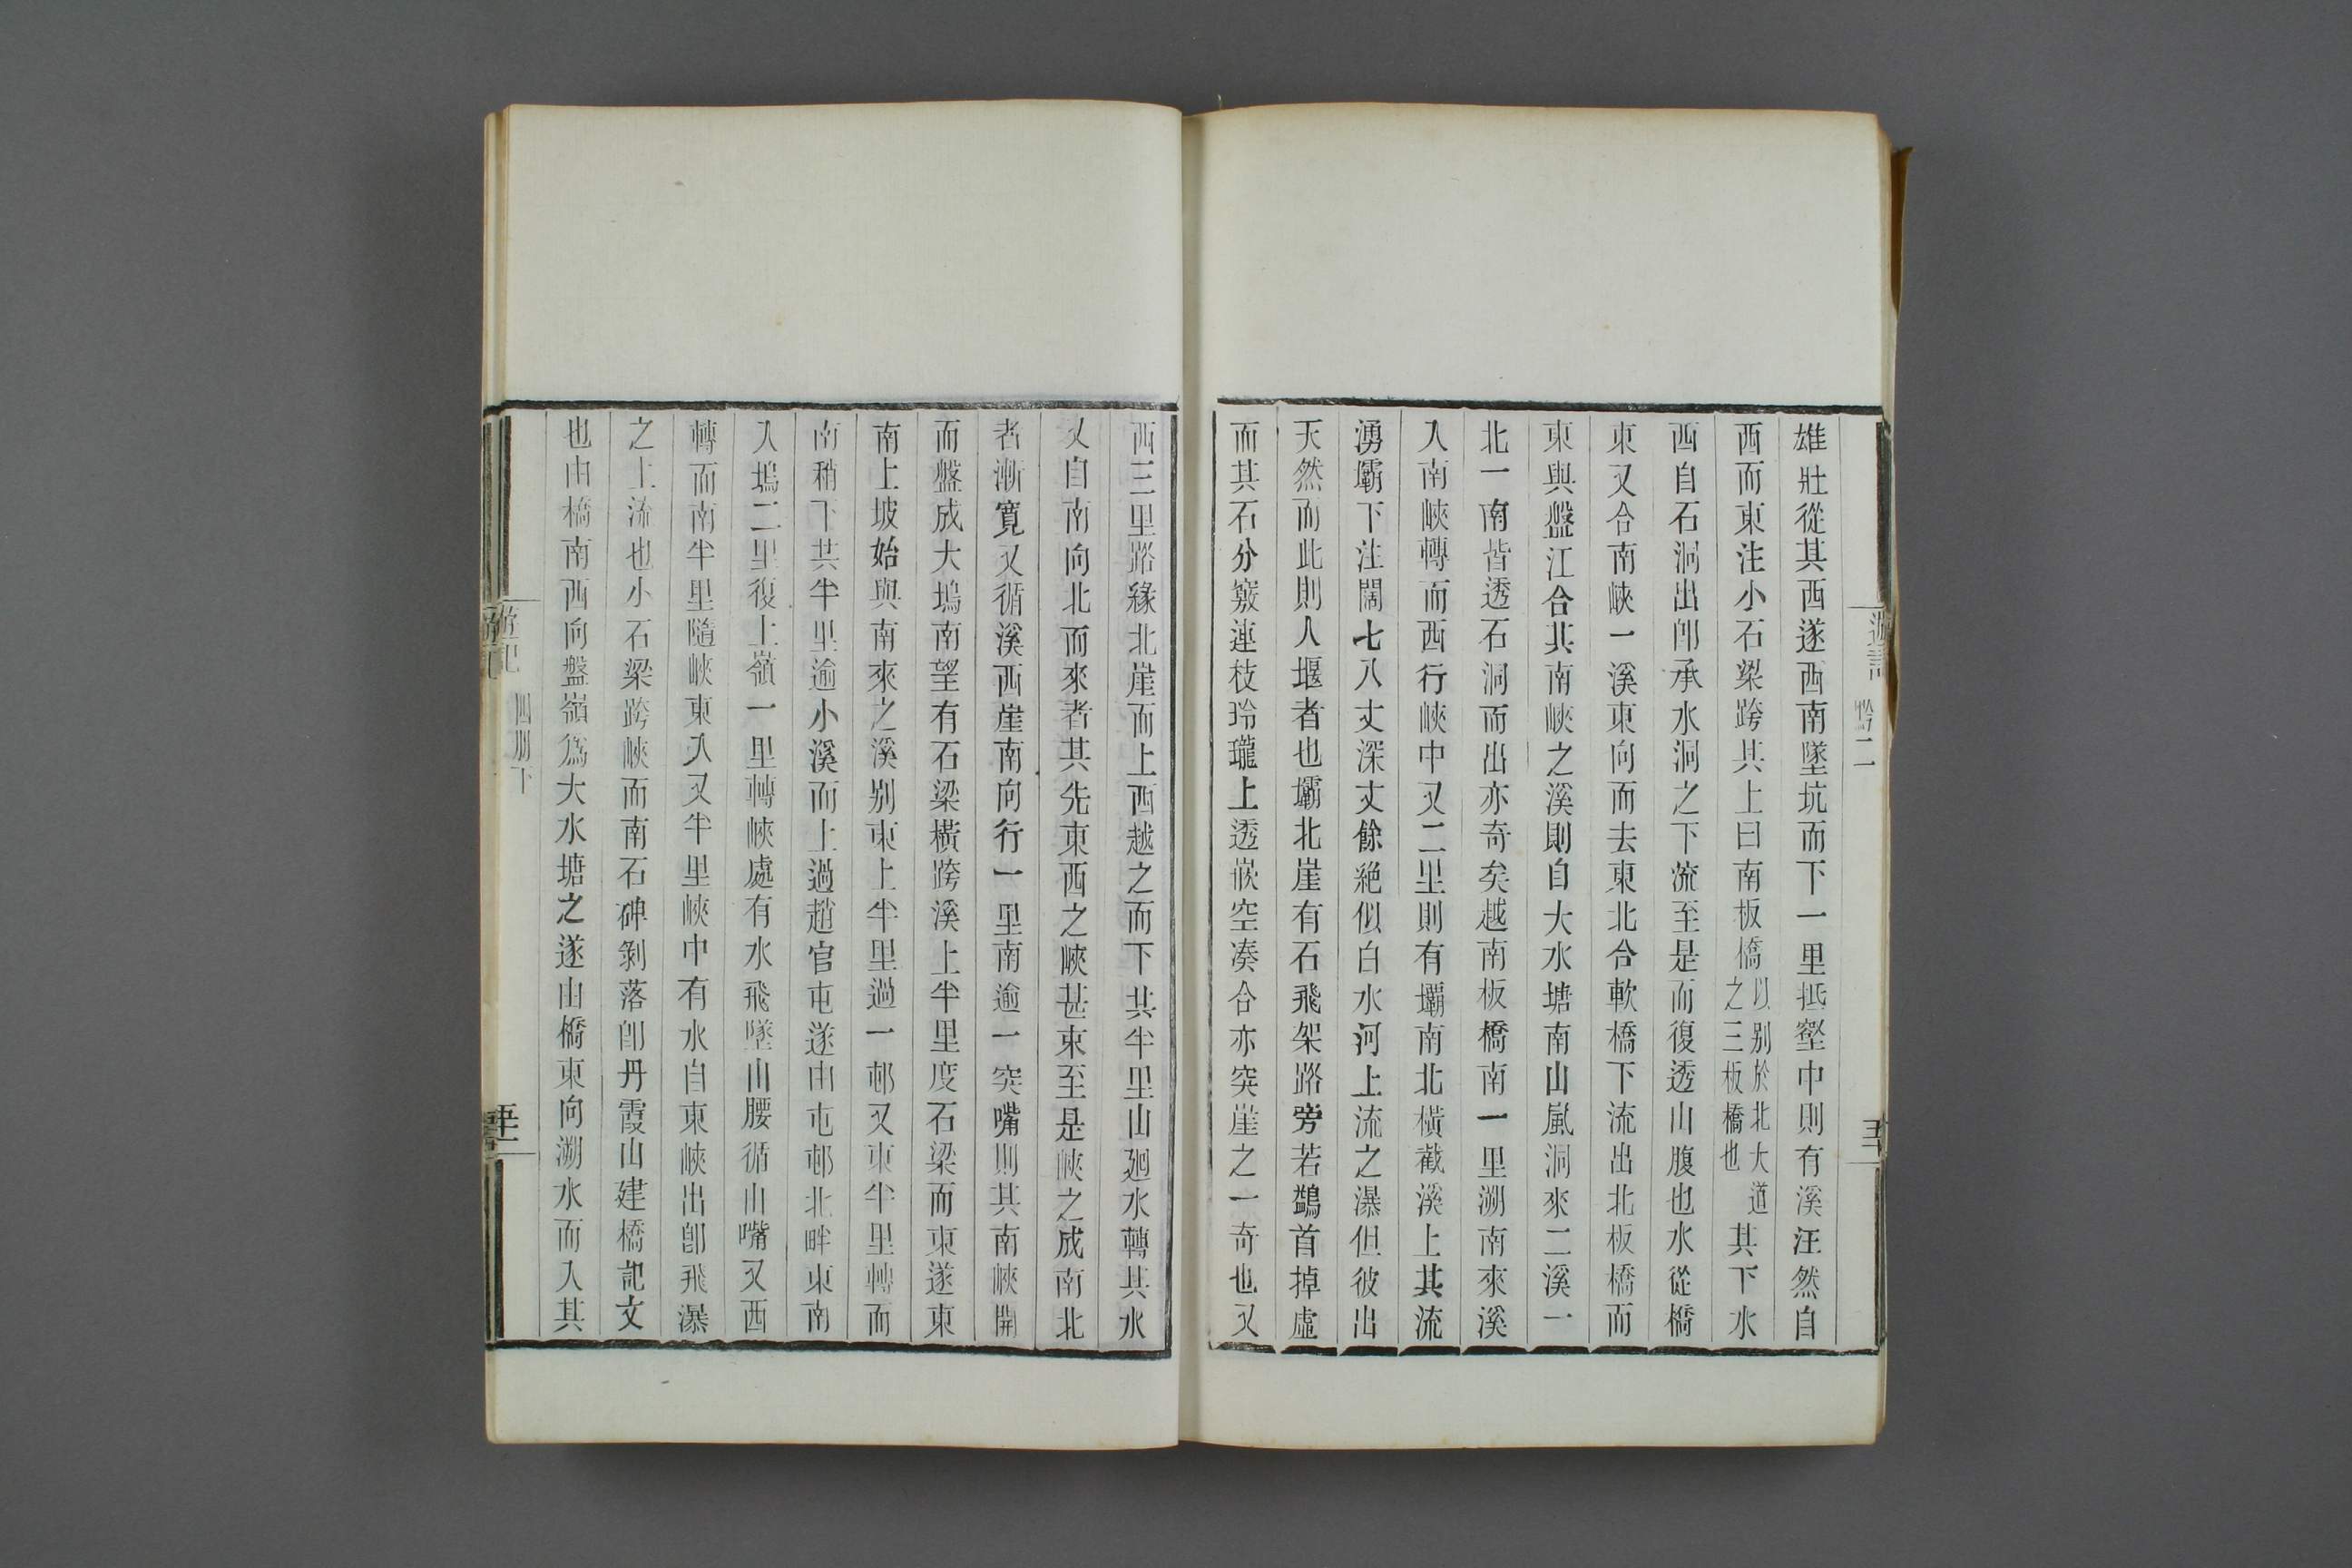 雄壯從其西遂西南墜坑而下一里抵壑中則有溪汪然自
西而東注小石梁跨其上曰南板橋以别於北大道之三板橋也其下水
西自石洞出卽承水洞之下流至是而復透山腹也水從橋
東又合南峽一溪東向而去東北合軟橋下流出北板橋而
東與盤江合其南峽之溪則自大水塘南山嵐洞來二溪一
北一南皆透石洞而出亦奇矣越南板橋南一里溯南來溪
入南峽轉而西行峽中又二里則有壩南北橫截溪上其流
湧壩下注闊七八丈深丈餘絶似白水河上流之瀑但彼出
天然而此則人堰者也壩北崖有石飛架路旁若鷁首掉虛
而其石分竅連枝玲瓏上透嵌空湊合亦突崖之一奇也又
西三里路緣北崖而上西越之而下共半里山廻水轉其水
又自南向北而來者其先東西之峽甚束至是峽之成南北
者漸寬又循溪西崖南向行一里南逾一突嘴則其南峽開
而盤成大塢南望有石梁橫跨溪上半里度石梁而東遂東
南上坡始與南來之溪别東上半里過一邨又東半里轉而
南稍下共半里逾小溪而上過趙官屯遂由屯邨北畔東南
入塢二里復上嶺一里轉峽處有水飛墜山腰循山嘴又西
轉而南半里隨峽東入又半里峽中有水自東峽出卽飛瀑
之上流也小石梁跨峽而南石碑剝落卽丹霞山建橋記文
也由橋南西向盤嶺爲大水塘之遂由橋東向溯水而入其
遊記
四册下
遊記
黔二